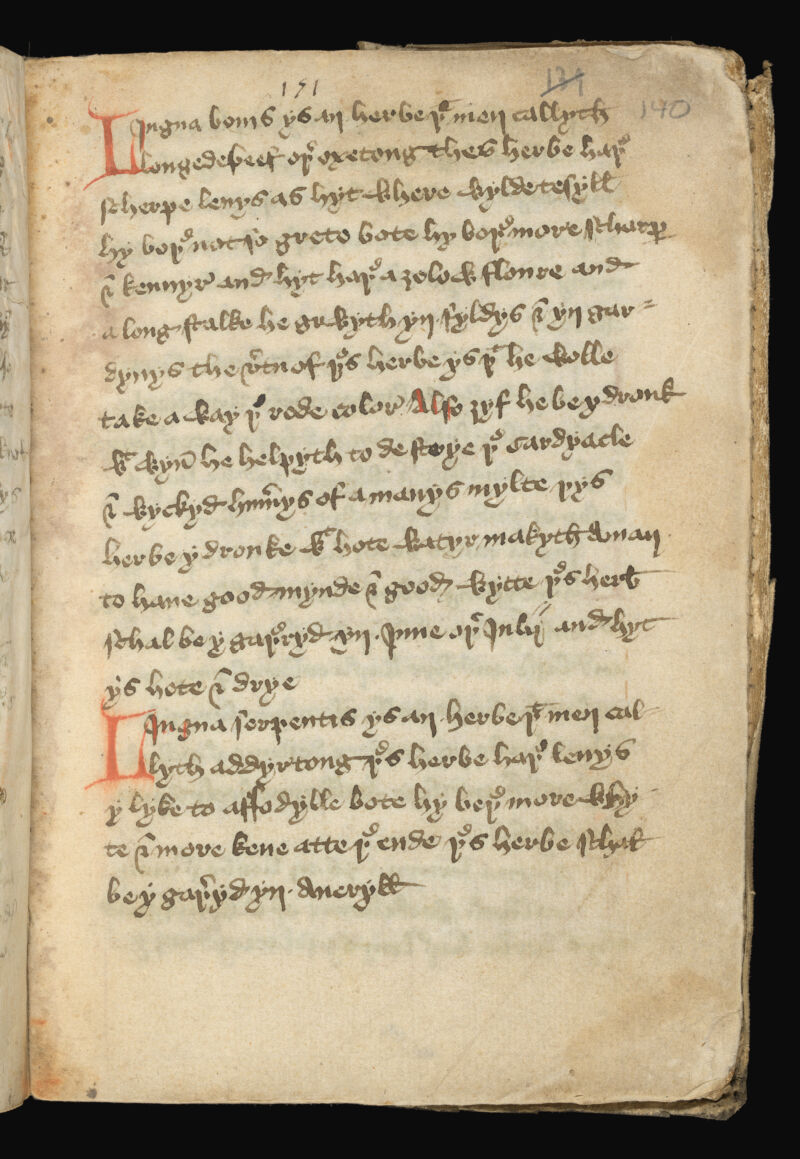 151
139
140
Lingua bovis ys an herbe þt men callyth
longedebeef oþr oxetong thes herbe haþe
scherpe levys as hyt where wyldetesyll
hy boþe not so grete bote hy boþe more scharp
& kennyr and hyt haþe a ȝelow floure and
a long stalke he growyth yn fyldys & yn gar-
dynys the vertu of þes herbe ys þt he wolle
take a way þe rede color Also ȝyf he be y dronk
wt wyn he helpyth to destroye þe cardyacle
& wyckyd humerys of a manys mylte þys
herbe y dronke wt hote watyr makyth a man
to have good mynde & good wytte þes herb
schal be y gaþeryd yn June oþr July and hyt
ys hote & drye
Lingua serpentis ys an herbe þt men cal-
lyth addyrtong þes herbe haþe levys
y lyke to affodylle bote hy beþe more why
te & more kene atte þe ende þes herbe schal
be y gaþeryd yn Averyll